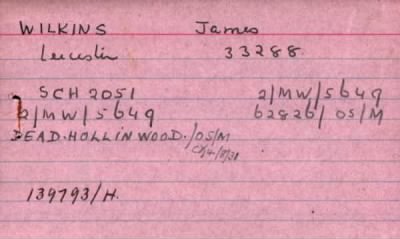 WILKINS James
Leicester 33288.
SCH 2051 2/MW/5649
2/MW/5649 62826/OS/M
DEAD. HOLLINWOOD. /OS/M
139793/H.